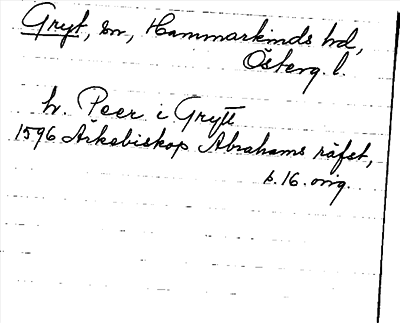 Gryt, sn, Hammarkinds hd,
Österg. l.
hr. Peer i Grytt
1596 Ärkebiskop Abrahams räfst,
s. 16. orig.